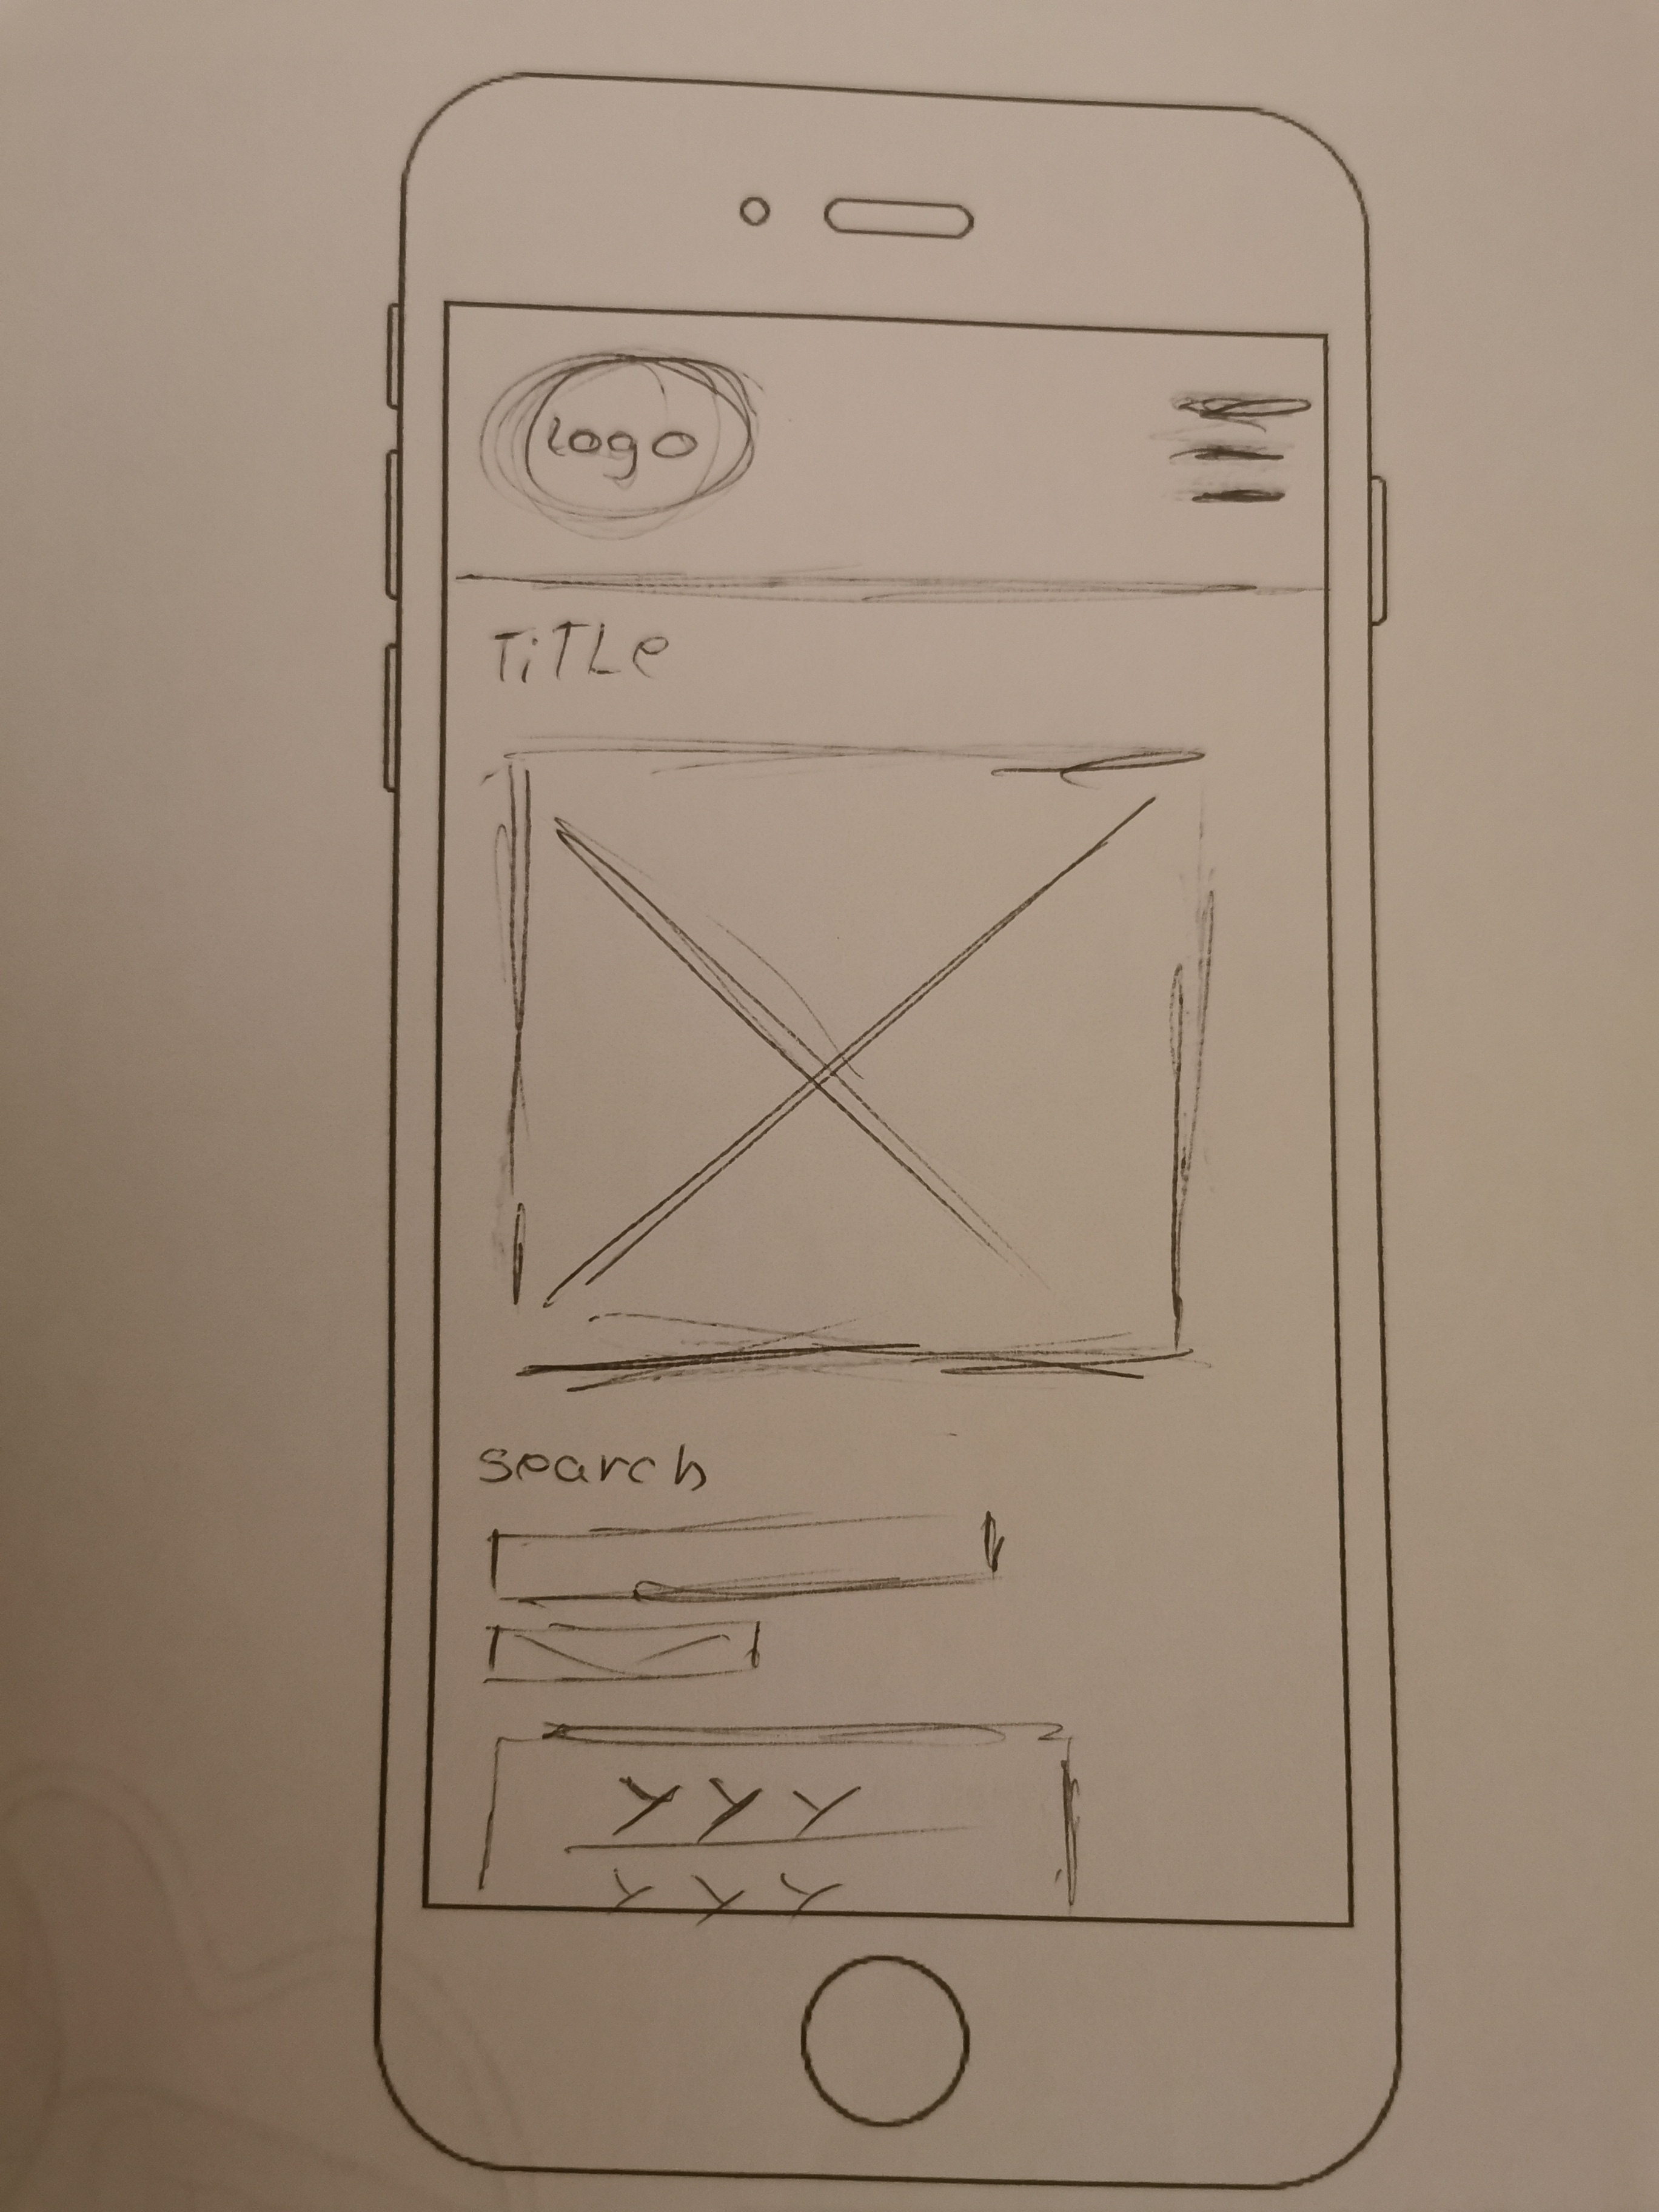 Logo
TiTLe
search
Y Y Y
Y Y Y